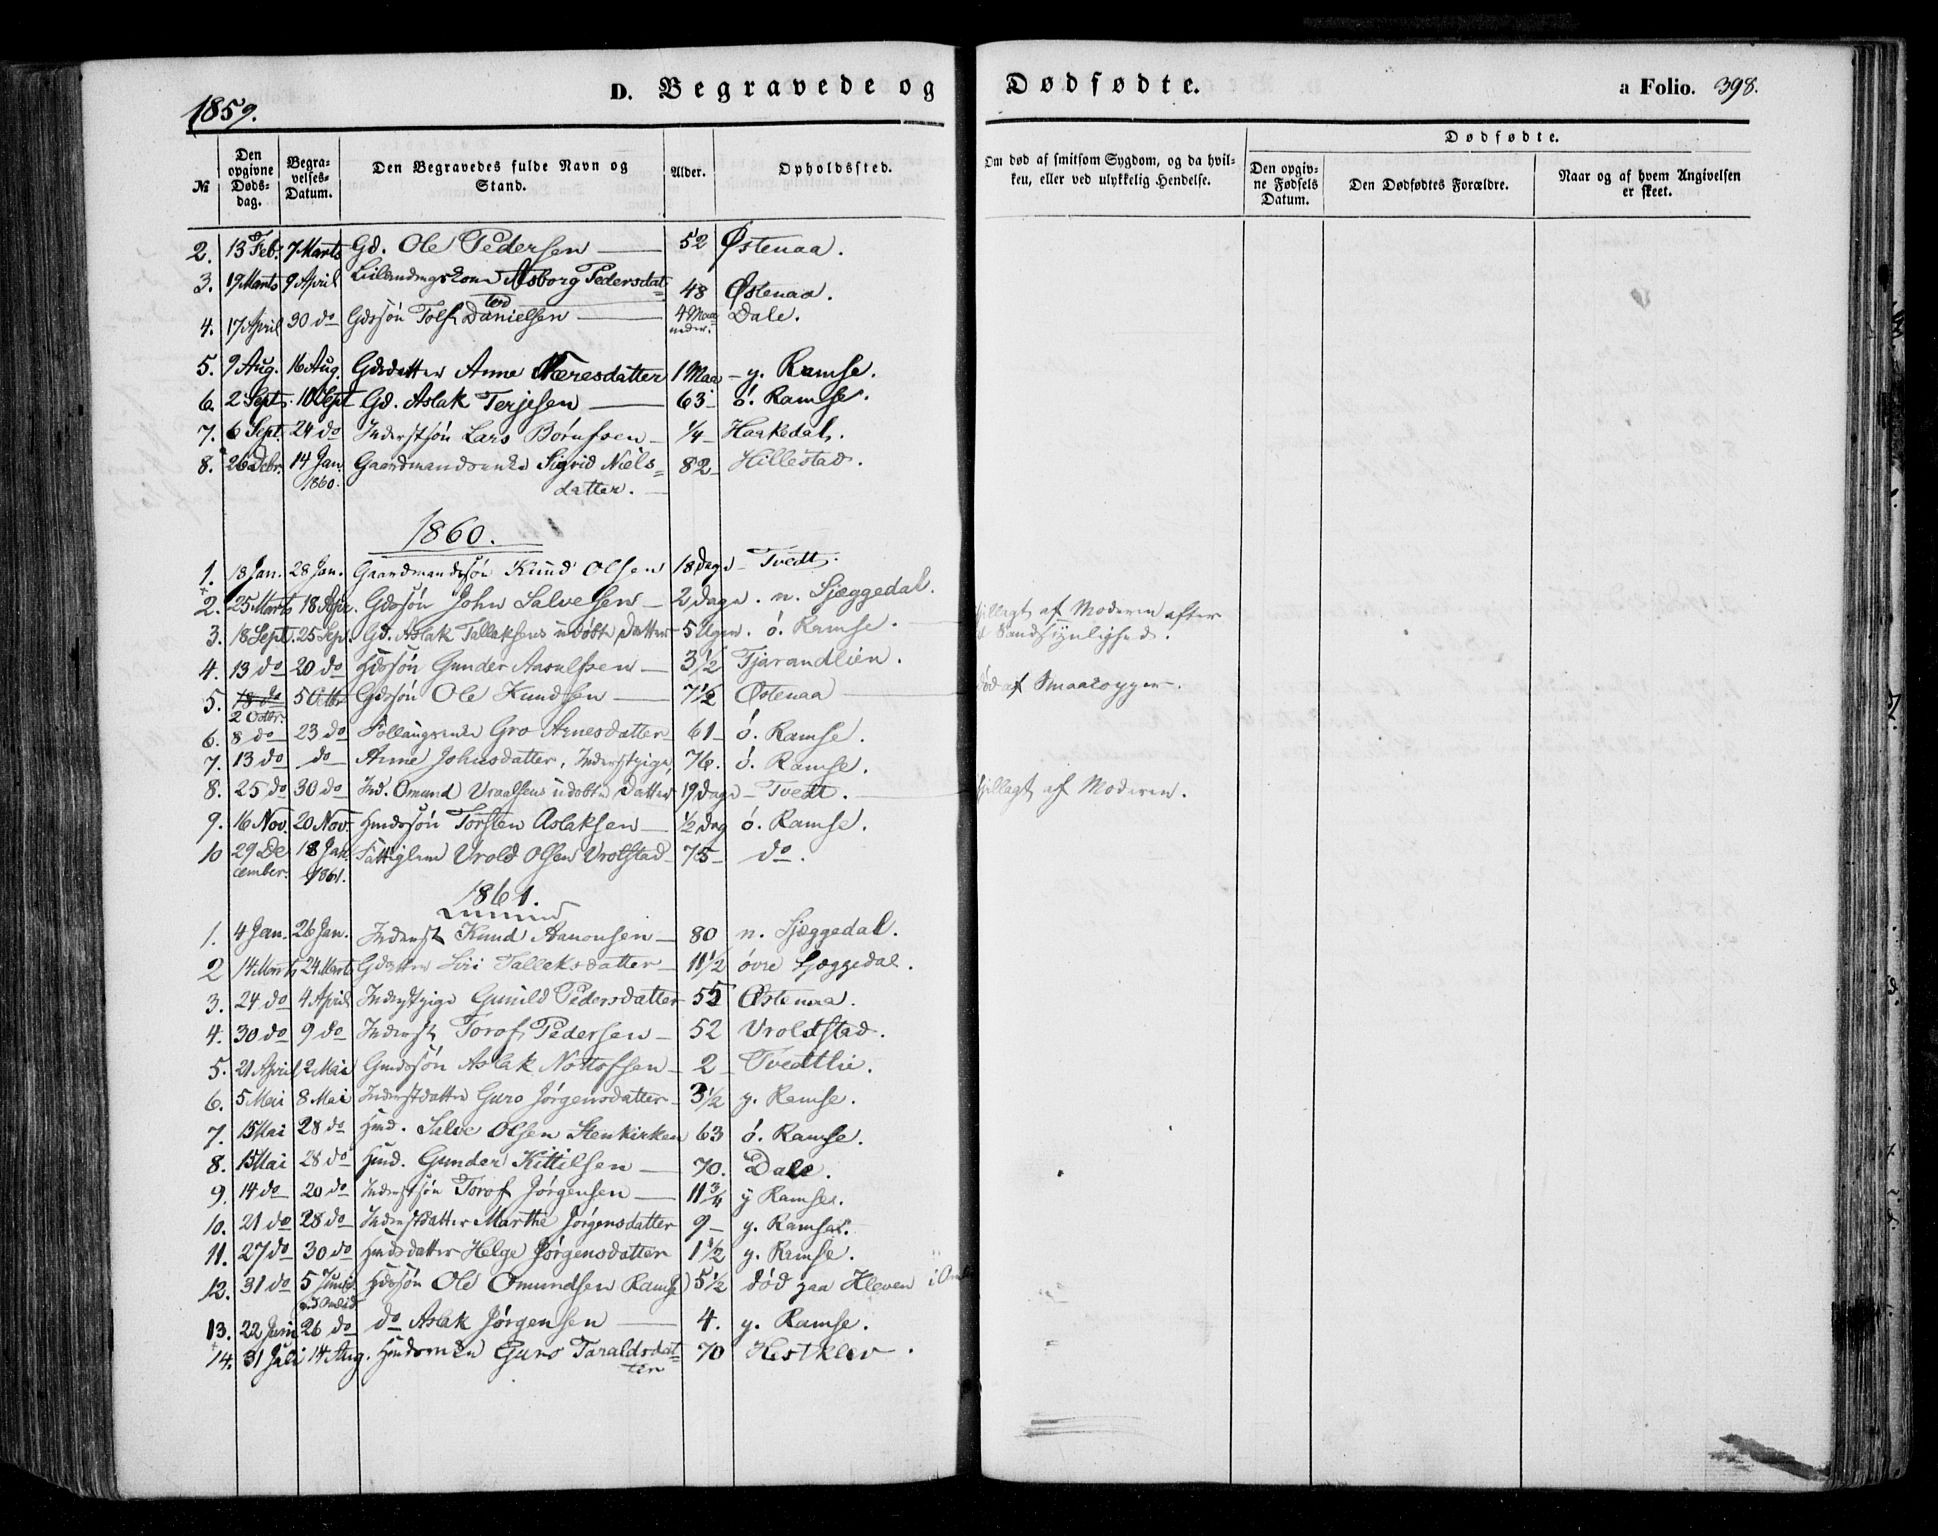 1859.
D. Begravede og Dødfødte.
a Folio. 398.
№ Den opgivne Døds-dag. Begra-velses-Datum. Den Begravedes fulde Navn og Stand. Alder. Opholdssted. Om død af smitsom Sygdom, og da hvil-ken, eller ved ulykkelig Hendelse.
Dødfødte.
Den opgiv-ne Fødsels Datum. Den Dødfødtes Forældre. Naar og af hvem Angivelsen er skeet.
2. 13 Feb. 7 Marts Gd. Ole Pedersen 52 Østenaa.
3. 19 Marts 9 April Asborg Pedersdat= 48 Østenaa.
ter
4. 17 April 30 do Gdssøn Tolf Danielsen 4 Maa=neder. Dale.
5. 9 Aug. 16 Aug. Gdsdatter Anne Tæresdatter 1 Maa - y. Ramse.
6. 2 Sept. 10 Sept Gd. Aslak Terjesen 63 ö. Ramse.
7. 6 Sept. 24 do Inderstsøn Lars Børufsen 1/4 Haakedal.
8. 26 Debr. 14 Jan. 1860. Gaardmandsenke Sigrid Niels= 82 Hillestad.
datter.
1860.
1. 18 Jan. 28 Jan. Gaardmandssøn Knud Olsen 18 Dage Tvedt.
2. 25 Marts 18 Apr. Gdssøn John Salvesen 2 Dage. n. Sjæggedal.
3. 18 Sept. 25 Sep. Gd. Aslak Tallaksens udøbte Datter 5 Uger. ö. Ramse. ihjellagt af Moderen efter
Sandsynlighed.
4. 13 do 20 do Hdssøn Gunder Aasulfsen 3 1/2 Tjarandlien.
5. 18 do 5 Octbr Gdssøn Ole Knudsen 7 1/2 Østenaa død af Smaakopper.
2 Octbr.
6. 8 do 23 do Follaugsenke Gro Arnesdatter 61 ö. Ramse.
7. 13 do do Anne Johnsdatter, Inderstpige, 76. ö. Ramse.
8. 25 do 30 do Ind. Omund Vraalsens udøbte Datter 19 Dage Tvedt. ihjellagt af Moderen.
9. 16 Nov. 20 Nov. Hmdssøn Torsten Aslaksen 1/2 Dag ö. Ramse.
10 29 De=cember. 18 Jan. 1861. Fattiglem Vrold Olsen Vrolstad 75 do.
1861.
1. 4 Jan. 26 Jan. Inderst Knud Aanonsen 80 n. Sjæggedal.
2 14 Marts 24 Marts Gdatter Siri Tallaksdatter 11 1/2 övre Sjæggedal.
3. 24 do 4 April Inderstpige Gunild Pedersdatter 55 Østenaa.
4. 30 do 9 do Inderst Torof Pedersen 52 Vroldstad.
5. 21 April 2 Mai Gmdssøn Aslak Nottofsen 2 Tvedtlie.
6. 5 Mai 8 Mai Inderstdatter Guro Jørgensdatter 3 1/2 y. Ramse.
7. 15 Mai 28 do Hmd. Salve Olsen Stenkirken 63 ö. Ramse.
8. 15 Mai 28 do Hmd. Gunder Kittilsen 70. Dale.
9. 14 do 20 do Inderstsøn Torof Jørgensen 11 3/4 y Ramse.
10. 21 do 28 do Inderstdatter Marthe Jørgensdatter 9 y. Ramse.
11. 27 do 30 do Hmdsdatter Helge Jørgensdatter 1 1/2 y. Ramse.
12. 31 do 5 Juni Hdssøn Ole Omundsen Ramse 5 1/2 død paa Kleven i
13. 22 Juni 26 do do Aslak Jørgensen 4. y. Ramse.
14. 31 Juli 14 Aug. Hmdsenke Guro Taraldsdat= 70 Hestklev.
ter